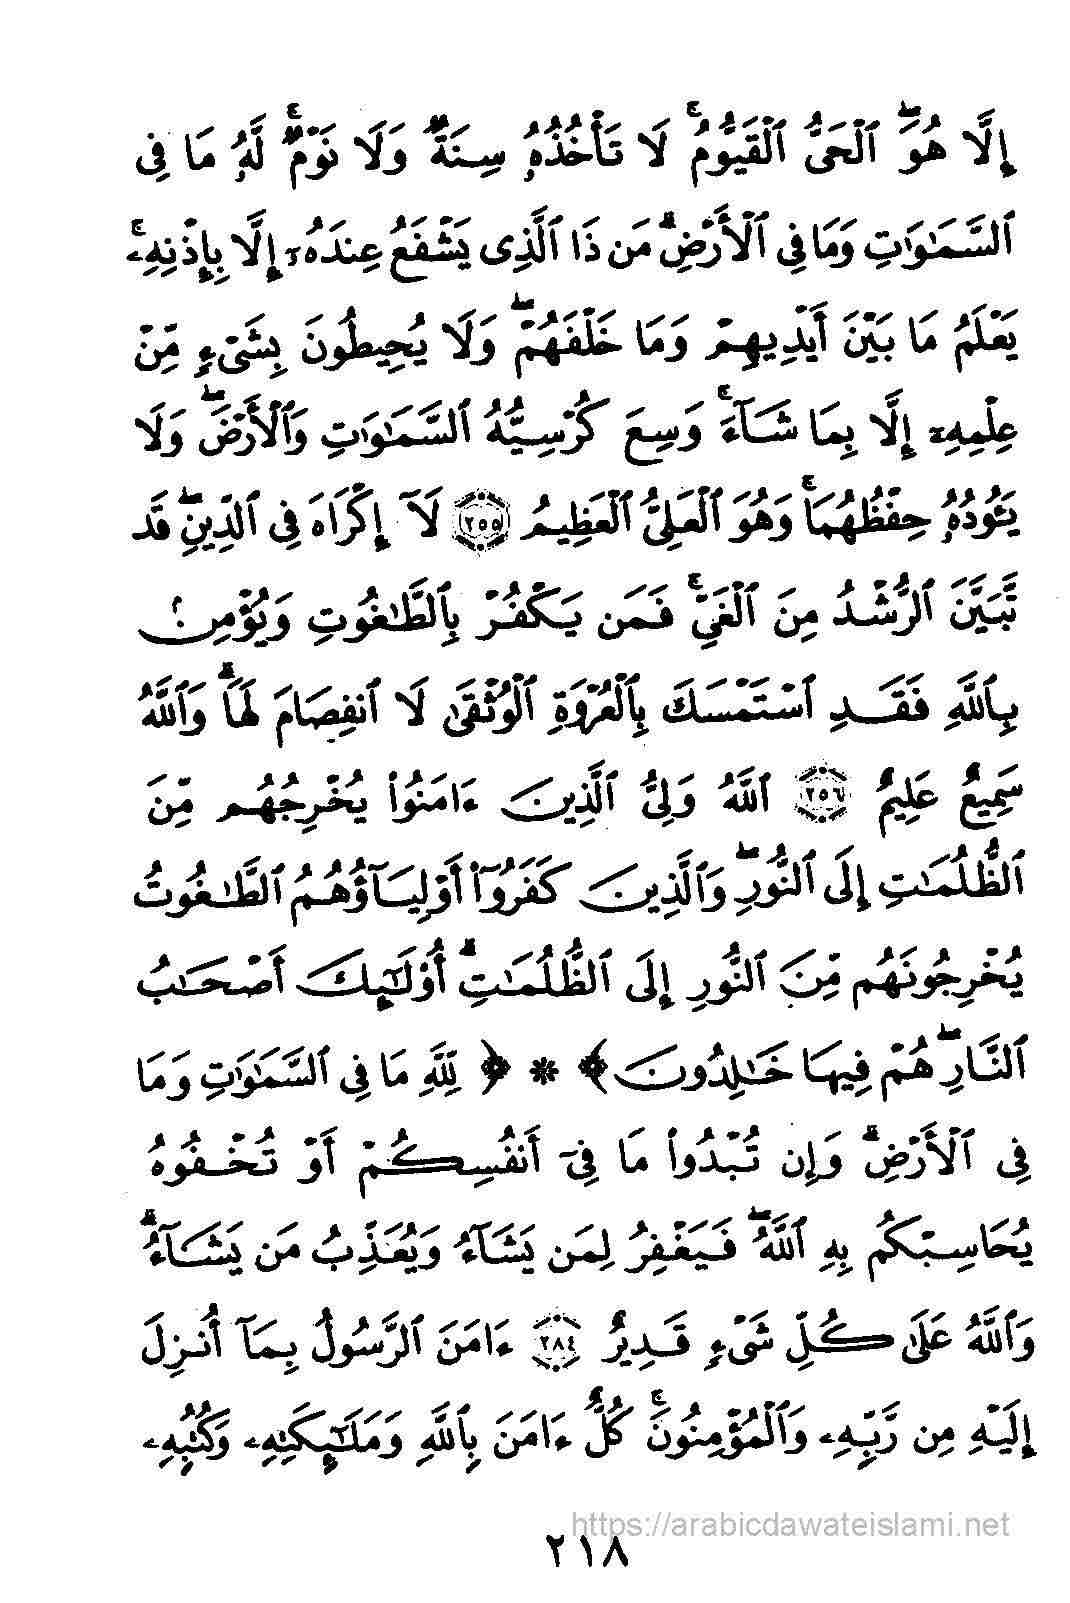 إِلَّا هُوَۖ ٱلْحَىُّ ٱلْقَيُّومُۚ لَا تَأْخُذُهُۥ سِنَةٌۭ وَلَا نَوْمٌۭۚ لَّهُۥ مَا فِى
ٱلسَّمَـٰوَٰتِ وَمَا فِى ٱلْأَرْضِۗ مَن ذَا ٱلَّذِى يَشْفَعُ عِندَهُۥٓ إِلَّا بِإِذْنِهِۦۚ
يَعْلَمُ مَا بَيْنَ أَيْدِيهِمْ وَمَا خَلْفَهُمْۖ وَلَا يُحِيطُونَ بِشَىْءٍۢ مِّنْ
عِلْمِهِۦٓ إِلَّا بِمَا شَآءَۚ وَسِعَ كُرْسِيُّهُ ٱلسَّمَـٰوَٰتِ وَٱلْأَرْضَۖ وَلَا
يَـُٔودُهُۥ حِفْظُهُمَاۚ وَهُوَ ٱلْعَلِىُّ ٱلْعَظِيمُ ٢٥٥ لَآ إِكْرَاهَ فِى ٱلدِّينِۖ قَد
تَّبَيَّنَ ٱلرُّشْدُ مِنَ ٱلْغَىِّۚ فَمَن يَكْفُرْ بِٱلطَّـٰغُوتِ وَيُؤْمِنۢ
بِٱللَّهِ فَقَدِ ٱسْتَمْسَكَ بِٱلْعُرْوَةِ ٱلْوُثْقَىٰ لَا ٱنفِصَامَ لَهَاۗ وَٱللَّهُ
سَمِيعٌ عَلِيمٌ ٢٥٦ ٱللَّهُ وَلِىُّ ٱلَّذِينَ ءَامَنُوا۟ يُخْرِجُهُم مِّنَ
ٱلظُّلُمَـٰتِ إِلَى ٱلنُّورِۖ وَٱلَّذِينَ كَفَرُوٓا۟ أَوْلِيَآؤُهُمُ ٱلطَّـٰغُوتُ
يُخْرِجُونَهُم مِّنَ ٱلنُّورِ إِلَى ٱلظُّلُمَـٰتِۗ أُو۟لَـٰٓئِكَ أَصْحَـٰبُ
ٱلنَّارِۖ هُمْ فِيهَا خَـٰلِدُونَ﴾ * ﴿لِلَّهِ مَا فِى ٱلسَّمَـٰوَٰتِ وَمَا
فِى ٱلْأَرْضِۗ وَإِن تُبْدُوا۟ مَا فِىٓ أَنفُسِكُمْ أَوْ تُخْفُوهُ
يُحَاسِبْكُم بِهِ ٱللَّهُۖ فَيَغْفِرُ لِمَن يَشَآءُ وَيُعَذِّبُ مَن يَشَآءُۗ
وَٱللَّهُ عَلَىٰ كُلِّ شَىْءٍۢ قَدِيرٌ ٢٨٤ ءَامَنَ ٱلرَّسُولُ بِمَآ أُنزِلَ
إِلَيْهِ مِن رَّبِّهِۦ وَٱلْمُؤْمِنُونَۚ كُلٌّ ءَامَنَ بِٱللَّهِ وَمَلَـٰٓئِكَتِهِۦ وَكُتُبِهِۦ
https://arabicdawateislami.net
٢١٨